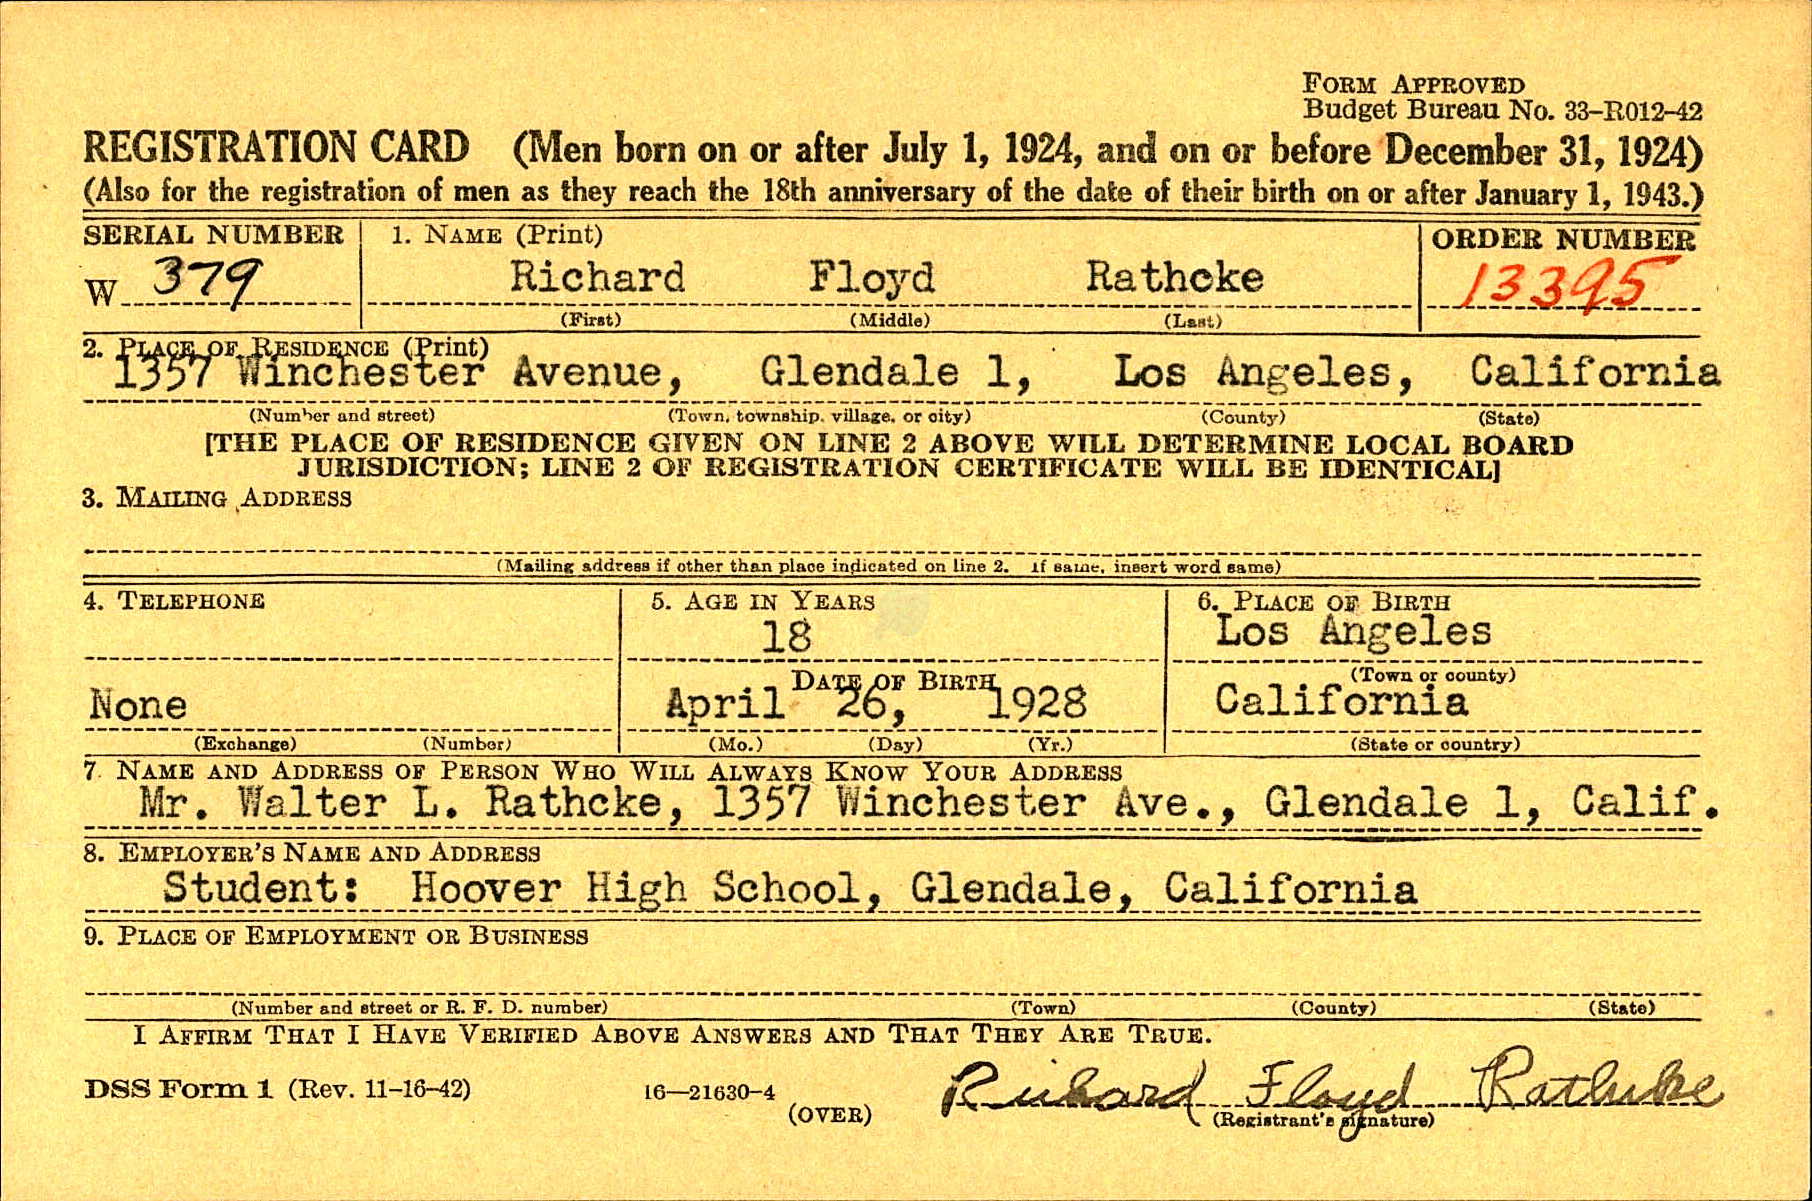 FORM APPROVED
Budget Bureau No. 33–R012–42
REGISTRATION CARD (Men born on or after July 1, 1924, and on or before December 31, 1924)
(Also for the registration of men as they reach the 18th anniversary of the date of their birth on or after January 1, 1943.)
SERIAL NUMBER 1. NAME (Print) ORDER NUMBER
W 379 Richard Floyd Rathcke 13395
(First) (Middle) (Last)
2. PLACE OF RESIDENCE (Print)
1357 Winchester Avenue, Glendale 1, Los Angeles, California
(Number and street) (Town, township, village, or city) (County) (State)
[THE PLACE OF RESIDENCE GIVEN ON LINE 2 ABOVE WILL DETERMINE LOCAL BOARD
JURISDICTION; LINE 2 OF REGISTRATION CERTIFICATE WILL BE IDENTICAL]
3. MAILING ADDRESS
(Mailing address if other than place indicated on line 2. If same, insert word same)
4. TELEPHONE 5. AGE IN YEARS 6. PLACE OF BIRTH
18 Los Angeles
DATE OF BIRTH (Town or county)
None April 26, 1928 California
(Exchange) (Number) (Mo.) (Day) (Yr.) (State or country)
7. NAME AND ADDRESS OF PERSON WHO WILL ALWAYS KNOW YOUR ADDRESS
Mr. Walter L. Rathcke, 1357 Winchester Ave., Glendale 1, Calif.
8. EMPLOYER'S NAME AND ADDRESS
Student: Hoover High School, Glendale, California
9. PLACE OF EMPLOYMENT OR BUSINESS
(Number and street or R. F. D. number) (Town) (County) (State)
I AFFIRM THAT I HAVE VERIFIED ABOVE ANSWERS AND THAT THEY ARE TRUE.
DSS Form 1 (Rev. 11–16–42) 16—21630–4 Richard Floyd Rathcke
(OVER) (Registrant's signature)